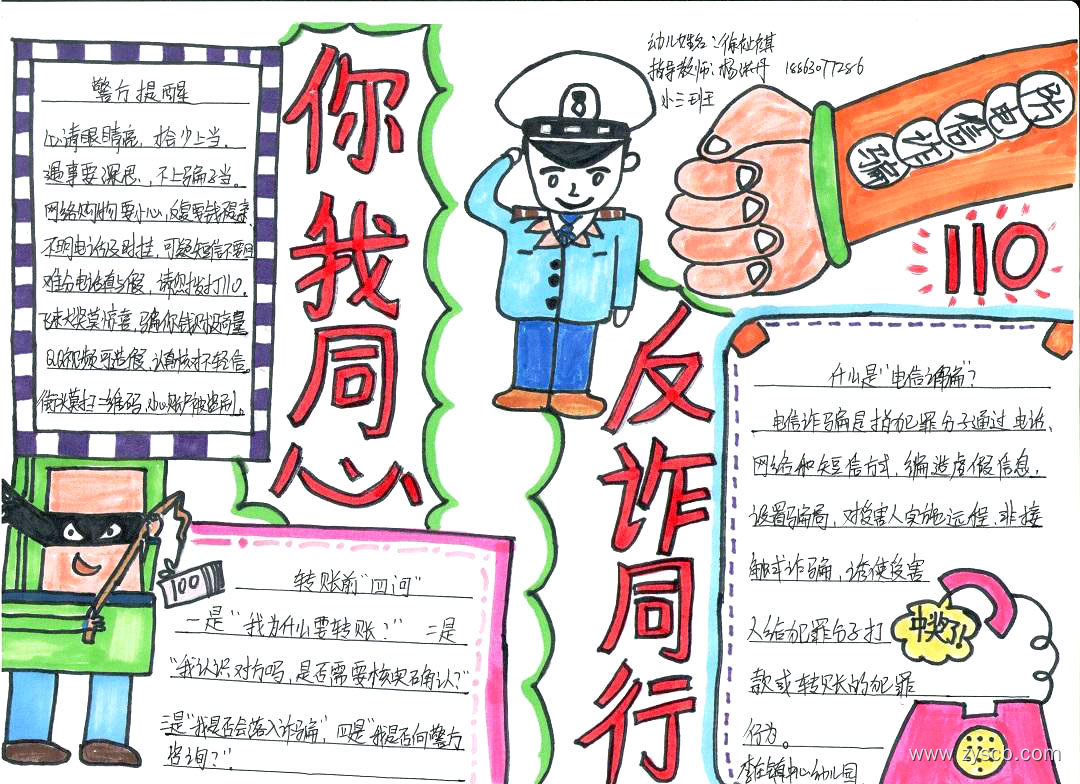 幼儿姓名:徐
指导教师:杨洪丹 18863077286
小三班王
你我同心
反诈同行
防电信诈骗
110
警方提醒
心清眼睛亮,拾少上当。
遇事要深思,不上骗子当。
网络购物要小心,反复要钱
不明电话及时挂,可疑短信不要
难分电话真与假,请您拨打110。
飞来大奖莫惊喜,骗你钱财没商量
QQ视频可造假,认真核打不轻信。
街头莫扫二维码,小心账户被盗刷。
100
转账前"四问"
一是"我为什么要转账?" 二是
"我认识对方吗,是否需要核实确认?"
三是"我是否会落入诈骗",四是"我是否向警方
咨询?"
什么是"电信诈骗"?
电信诈骗是指犯罪分子通过电话、
网络和短信方式,编造虚假信息,
设置骗局,对受害人实施远程、非接
触式诈骗,诱使受害
人给犯罪分子打
款或转账的犯罪
行为。
中奖了!
李在镇中心幼儿园
www.zyscb.com